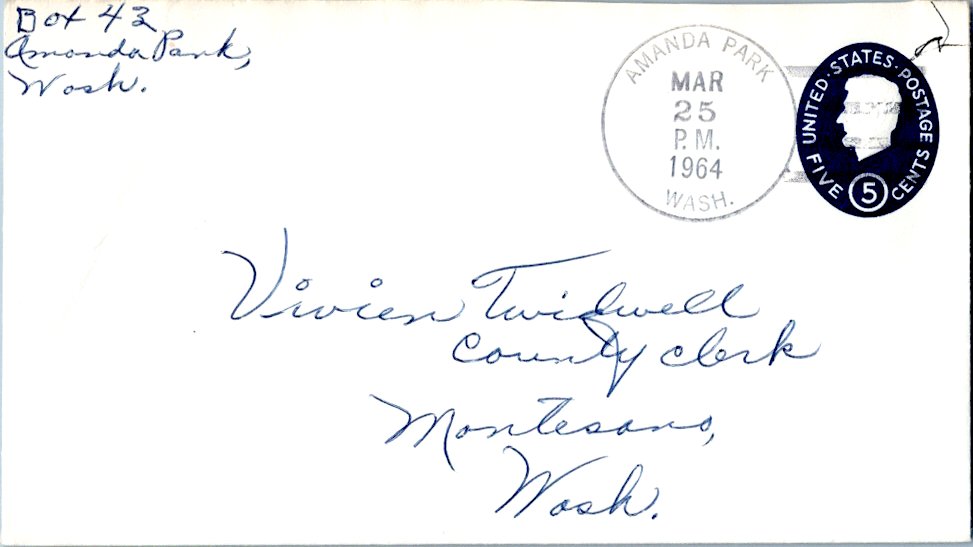 Box 43
Amanda Park,
Wash.
AMANDA PARK
MAR
25
P.M.
1964
WASH.
UNITED·STATES·POSTAGE
FIVE CENTS
5
Vivien Twidwell
County Clerk
Montesano,
Wash.